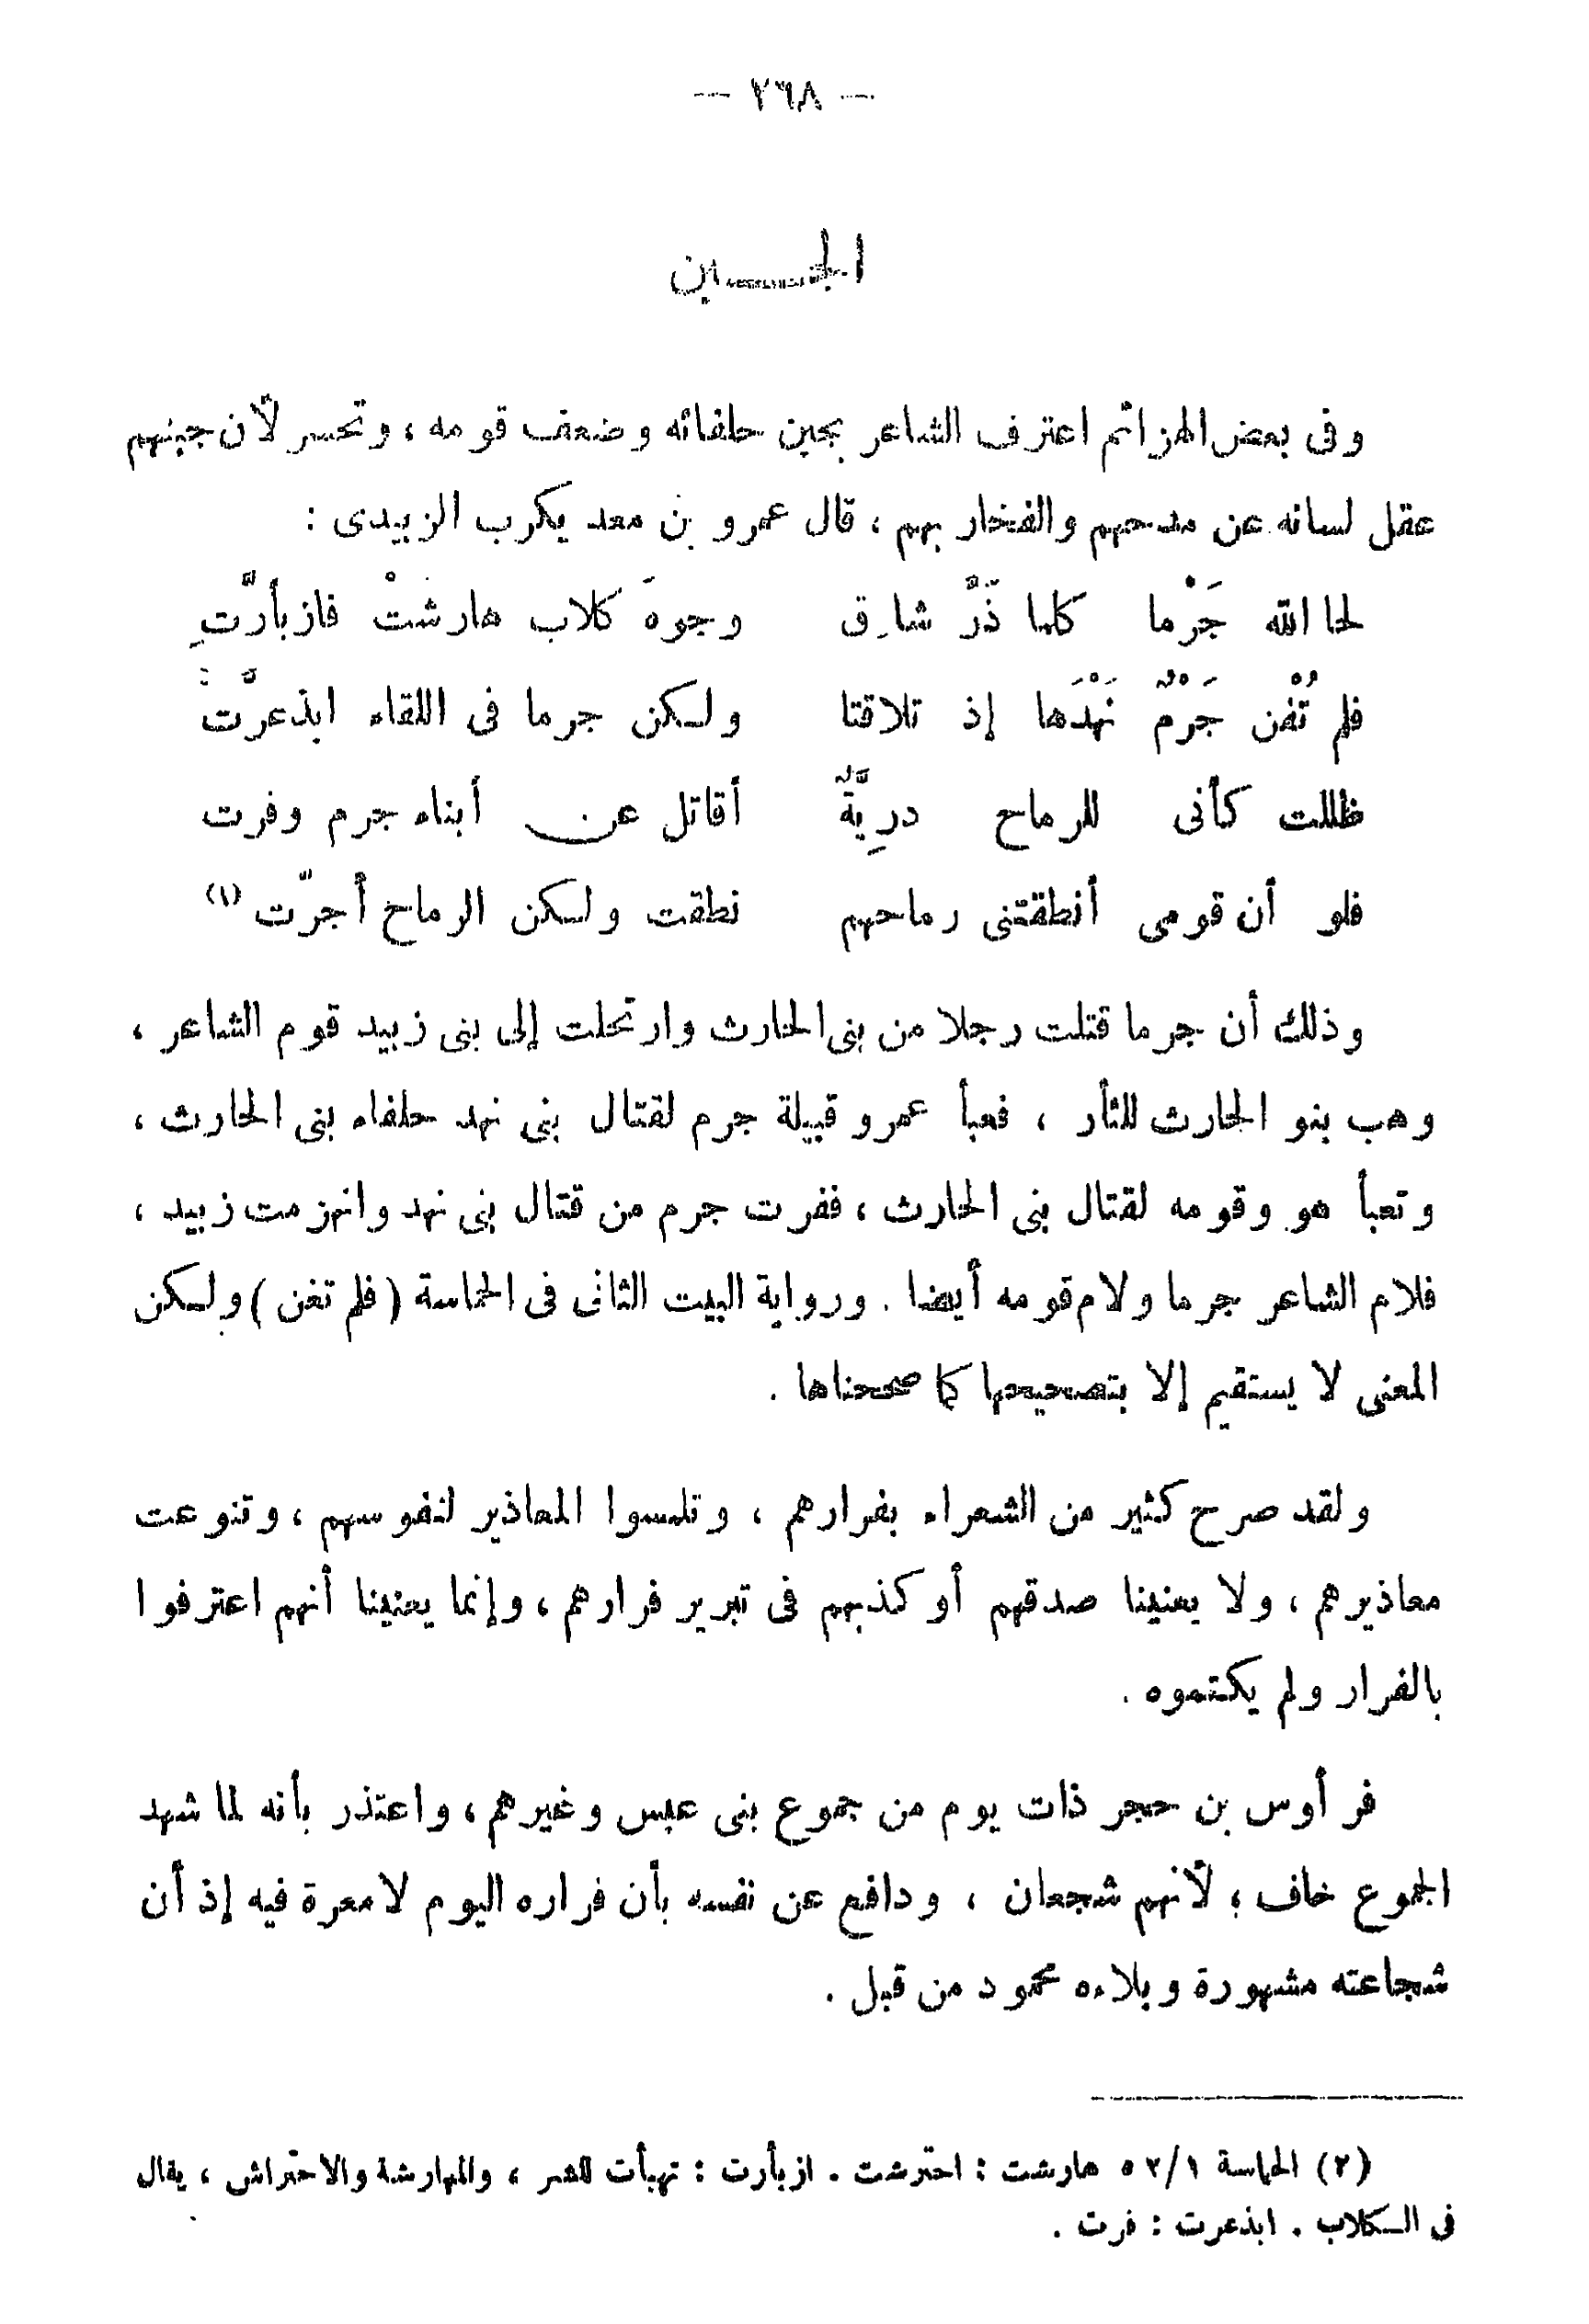 — ٢٦٨ —
الجبن
وفى بعض الهزائم اعترف الشاعر بجبن حلفائه وضعف قومه ، وتحسر لأن جبنهم
عقل لسانه عن مدحهم والفخار بهم ، قال عمرو بن معد يكرب الزبيدى :
لحا الله جَرْما كلما ذَرَّ شارق وجوهَ كلاب هارشتْ فازبأرَّتِ
فلم تُفْن جَرْمٌ نَهْدَها إذ تلاقتا ولكن جرما فى اللقاء ابذعرَّت
ظللت كأنى للرماح دريَّةٌ أقاتل عن أبناء جرم وفرت
فلو أن قومى أنطقتنى رماحهم نطقت ولكن الرماح أجرّت (١)
وذلك أن جرما قتلت رجلا من بنى الحارث وارتحلت إلى بنى زبيد قوم الشاعر ،
وهب بنو الحارث للثأر ، فعبأ عمرو قبيلة جرم لقتال بنى نهد حلفاء بنى الحارث ،
وتعبأ هو وقومه لقتال بنى الحارث ، ففرت جرم من قتال بنى نهد وانهزمت زبيد ،
فلام الشاعر جرما ولام قومه أيضا . ورواية البيت الثانى فى الحماسة ( فلم تغن ) ولكن
المعنى لا يستقيم إلا بتصحيحها كما صححناها .
ولقد صرح كثير من الشعراء بفرارهم ، وتلمسوا المعاذير لنفوسهم ، وتنوعت
معاذيرهم ، ولا يعنينا صدقهم أو كذبهم فى تبرير فرارهم ، وإنما يعنينا أنهم اعترفوا
بالفرار ولم يكتموه .
فر أوس بن حجر ذات يوم من جموع بنى عبس وغيرهم ، واعتذر بأنه لما شهد
الجموع خاف ؛ لأنهم شجعان ، ودافع عن نفسه بأن فراره اليوم لا معرة فيه إذ أن
شجاعته مشهورة وبلاءه محمود من قبل .
(٢) الحماسة ١/٥٢ هارشت : احترشت . ازبأرت : تهيأت للشر ، والمهارشة والاحتراش ، يقال
فى الكلاب . ابذعرت : فرت .